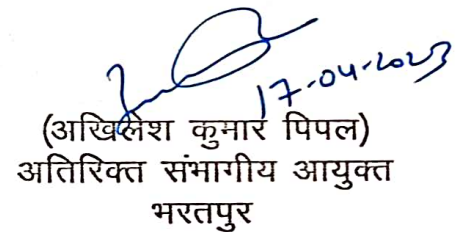 17-04-2023
(अखिलेश कुमार पिपल)
अतिरिक्त संभागीय आयुक्त
भरतपुर